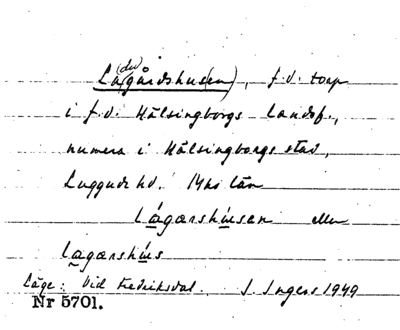 La(du)gårdshus(en), f.d. torp
i f.d. Hälsingborgs landsf.,
numera i Hälsingborgs stad,
Luggude hd. Mhs län
lágarshúsen eller
lagarshús
Läge: Vid Fredriksdal. J. Ingers 1949
Nr 5701.